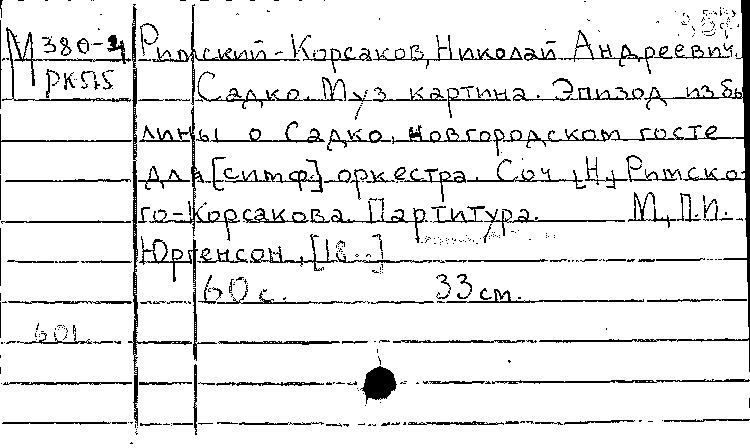 М 380-4 Римский-Корсаков, Николай Андреевич.
РК515 Садко. Муз. картина. Эпизод из бы
лины о Садко, новгородском госте
для [симф.] оркестра. Соч. [Н.] Римско-
го-Корсакова. Партитура. М., П.И.
Юргенсон, [18..]
60 с. 33 см.
601